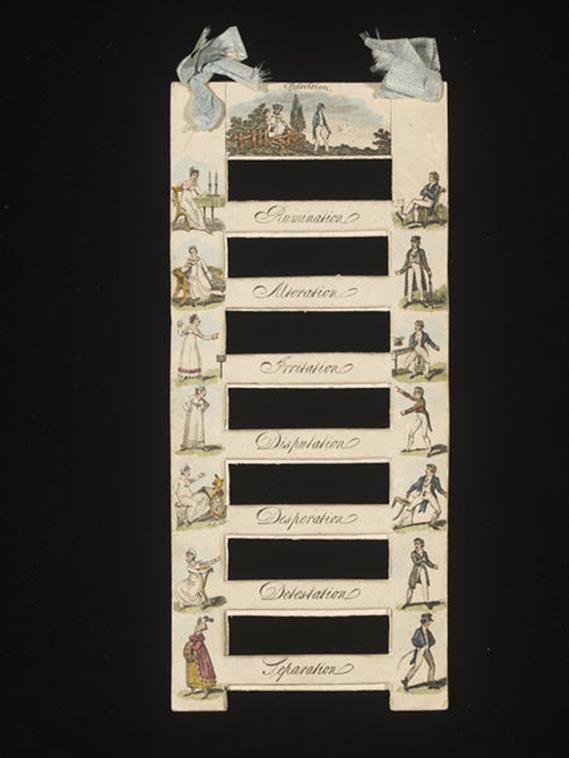 Possession.
Rumination
Alteration
Irritation
Disputation
Desperation
Detestation
Separation